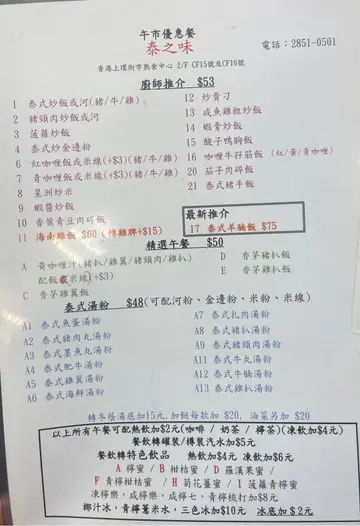 午市優惠餐
泰之味
電話：2851-0501
香港上環街市熟食中心 2/F CF15號及CF16號
廚師推介 $53
1 泰式炒飯或河(豬/牛/雞)
2 豬頸肉炒飯或河
3 菠蘿炒飯
4 泰式炒金邊粉
6 紅咖喱飯或米線(+$3)(豬/牛/雞)
7 青咖喱飯或米線(+$3)(豬/牛/雞)
8 星洲炒米
9 蝦醬炒飯
10 香葉青豆肉碎飯
11 海南雞飯 $60 (轉雞髀+$15)
12 炒貴刁
13 咸魚雞粒炒飯
14 蝦膏炒飯
15 酸子鴨胸飯
16 咖喱牛孖筋飯 (紅/黃/青咖喱)
20 茄子肉碎飯
21 泰式豬手飯
最新推介
17 泰式羊腩飯 $75
精選午餐 $50
A 黃咖喱汁(豬扒/雞翼/豬頸肉/雞扒)
配飯或米線(+$3)
C 香茅雞翼飯
D 香茅豬扒飯
E 香茅雞扒飯
泰式湯粉 $48(可配河粉、金邊粉、米粉、米線)
A1 泰式魚蛋湯粉
A2 泰式豬肉丸湯粉
A3 泰式墨魚丸湯粉
A4 泰式肥牛湯粉
A5 泰式雞翼湯粉
A6 泰式海鮮湯粉
A7 泰式扎肉湯粉
A8 泰式豬扒湯粉
A9 泰式豬頸肉湯粉
A11 泰式牛丸湯粉
A12 泰式牛腩湯粉
A13 泰式雞扒湯粉
轉冬蔭湯底加10元,加餸每款加 $20, 油菜另加 $20
以上所有午餐可配熱飲加$2元(咖啡 / 奶茶 / 檸茶)(凍飲加$4元)
餐飲轉罐裝/樽裝汽水加$5元
餐飲轉特色飲品 熱飲加$4元 凍飲加$6元
A 檸蜜 / B 柑桔蜜 / D 羅漢果蜜 /
F 青檸柑桔蜜 / H 菊花薑蜜 / I 菠蘿青檸蜜
凍檸樂、咸檸樂、咸檸七、青檸梳打加$8元
椰汁冰、青檸薏米水、三色冰加$10元 冰底加$2元